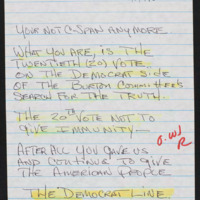 YOUR NOT C-SPAN ANYMORE.
WHAT YOU ARE, IS THE
TWENTIETH (20) VOTE
ON THE DEMOCRAT SIDE
OF THE BURTON COMMITTEE'S
SEARCH FOR THE TRUTH.
THE 20TH VOTE NOT TO
GIVE IMMUNITY—
AFTER ALL YOU GAVE US
AND CONTINUE TO GIVE
THE AMERICAN PEOPLE
THE DEMOCRAT LINE.